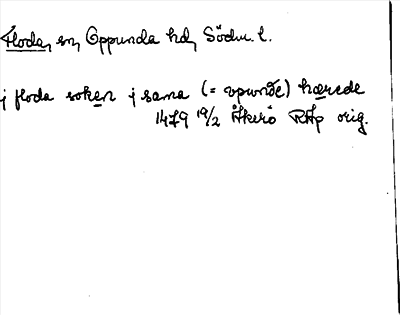 Floda, sn, Oppunda hd, Södm. l.
j floda soken j sama (= vpundæ) hærede
1479 19/2 Åkerö RAp orig.